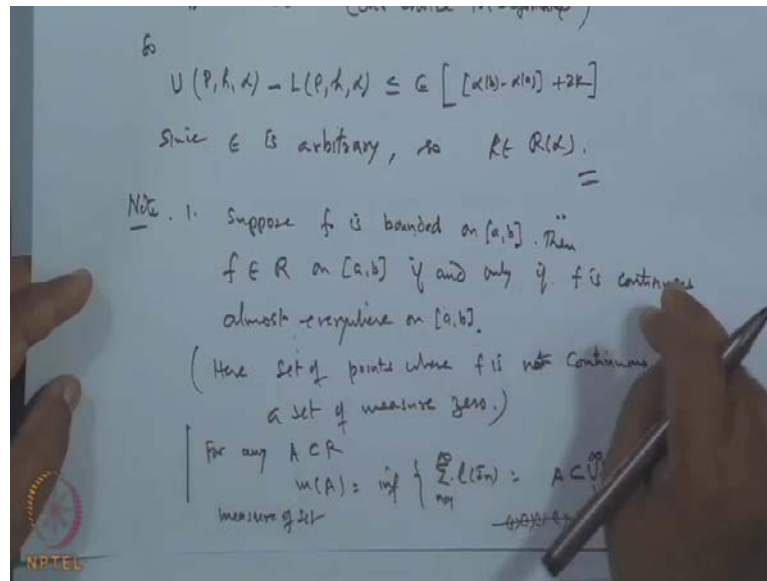 So
U (P, h, α) - L (P, h, α) ≤ ∈ [ [α(b) - α(a)] + 2K ]
Since ∈ is arbitrary, so h ∈ R(α).
Note. 1. Suppose f is bounded on [a, b]. Then
f ∈ R on [a, b] if and only if f is continuous
almost everywhere on [a, b].
(Here set of points where f is not continuous
a set of measure zero.)
For any A ⊂ R
m(A) = inf { ∑ l(In) : A ⊂ ∪
measure of set
NPTEL